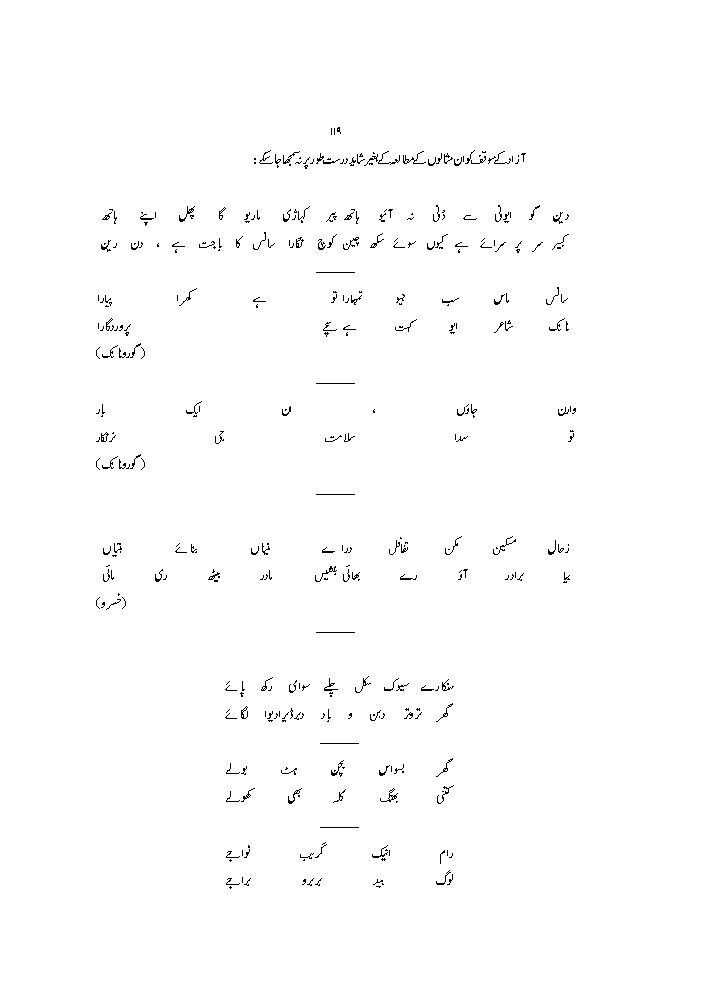 ۱۱۹
آزاد کے موقف کو ان مثالوں کے مطالعہ کے بغیر شاید درست طور پر نہ سمجھا جا سکے :
دین گو ایونی سے دُنی نہ آئیو ہاتھ پیر کہاڑی ماریو گا پھل اپنے ہاتھ
کبیر سر پر سرائے ہے کیوں سوئے سکھ چین کوچ نگارا سانس کا باجت ہے ، دن رین
سانس ماس سب جیو تمہارا تو ہے کھرا پیارا
نانک شاعر ایو کہت ہے سچے پروردگارا
(گورونانک)
وارن جاؤں ، ان ایک بار
تو سدا سلامت جی نرنکار
(گورونانک)
زحال مسکین مکن تغافل درائے نیناں بنائے بتیاں
بیا برادر آؤ رے بھائی بنشیں مادر بیٹھ ری مائی
(خسرو)
سنکارے سیوک سکل چلے سوای رکھ پائے
گھر تروتر دبن و باد دیرڈیرادیوا لگائے
گھر بسواس بچن ہٹ بولے
کنّی بھنگ کلہ بھی کھولے
رام انیک گریب نواجے
لوگ بید بربرو براجے